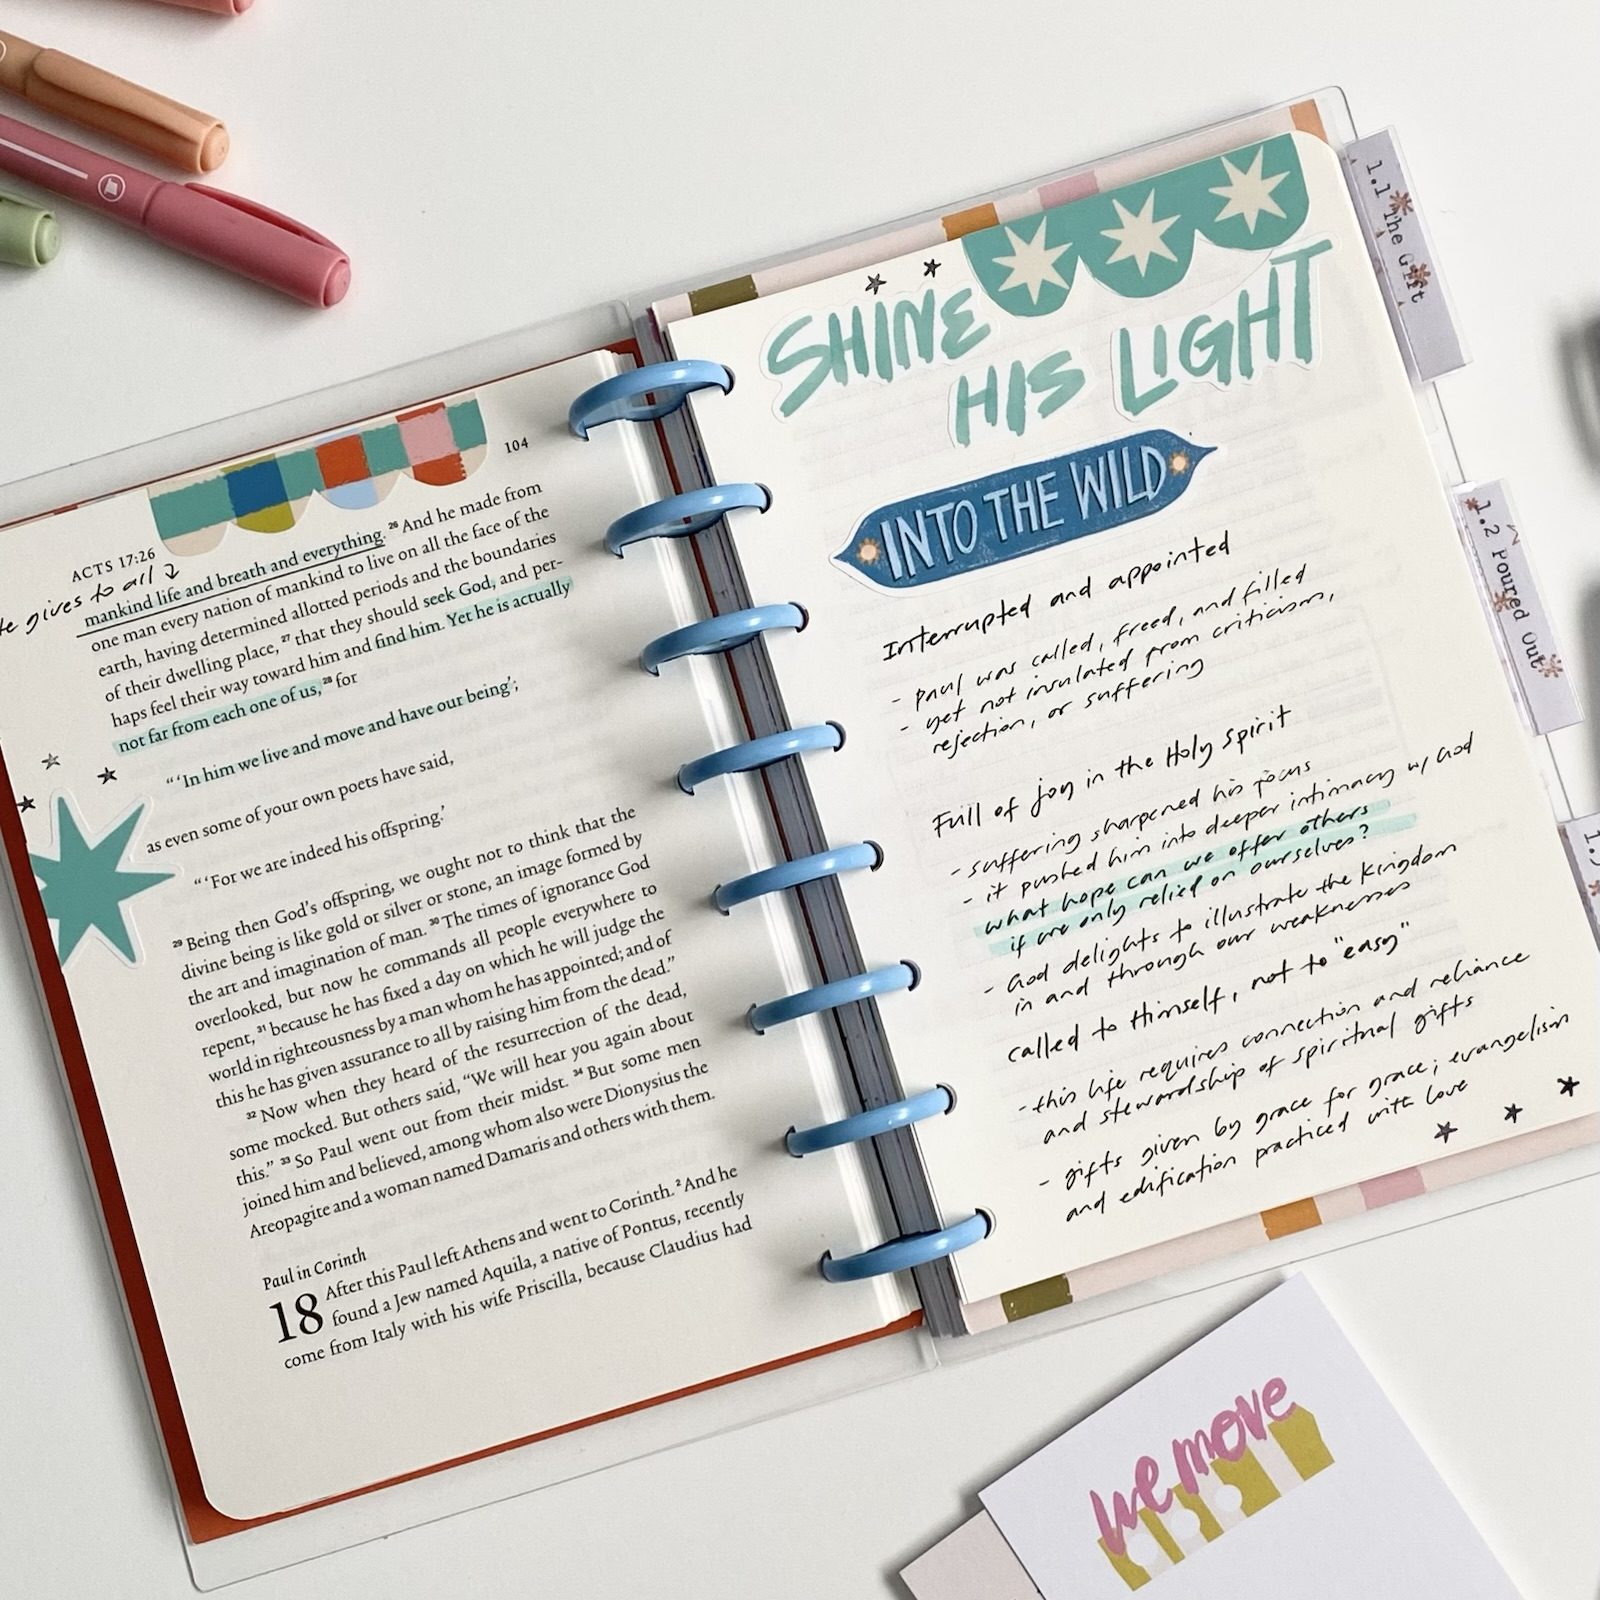 104
ACTS 17:26
He gives to all
mankind life and breath and everything. 26 And he made from
one man every nation of mankind to live on all the face of the
earth, having determined allotted periods and the boundaries
of their dwelling place, 27 that they should seek God, and per-
haps feel their way toward him and find him. Yet he is actually
not far from each one of us, 28 for
“‘In him we live and move and have our being’;
as even some of your own poets have said,
“‘For we are indeed his offspring.’
29 Being then God's offspring, we ought not to think that the
divine being is like gold or silver or stone, an image formed by
the art and imagination of man. 30 The times of ignorance God
overlooked, but now he commands all people everywhere to
repent, 31 because he has fixed a day on which he will judge the
world in righteousness by a man whom he has appointed; and of
this he has given assurance to all by raising him from the dead.”
32 Now when they heard of the resurrection of the dead,
some mocked. But others said, “We will hear you again about
this.” 33 So Paul went out from their midst. 34 But some men
joined him and believed, among whom also were Dionysius the
Areopagite and a woman named Damaris and others with them.
Paul in Corinth
18 After this Paul left Athens and went to Corinth. 2 And he
found a Jew named Aquila, a native of Pontus, recently
come from Italy with his wife Priscilla, because Claudius had
SHINE
HIS LIGHT
INTO THE WILD
Interrupted and appointed
- paul was called, freed, and filled
- yet not insulated from criticism,
rejection, or suffering
Full of joy in the Holy Spirit
- suffering sharpened his focus
- it pushed him into deeper intimacy w/ God
what hope can we offer others
if we only relied on ourselves?
- God delights to illustrate the kingdom
in and through our weaknesses
called to Himself, not to "easy"
- this life requires connection and reliance
and stewardship of spiritual gifts
- gifts given by grace for grace; evangelism
and edification practiced with love
1.1 The Gift
1.2 Poured Out
we move